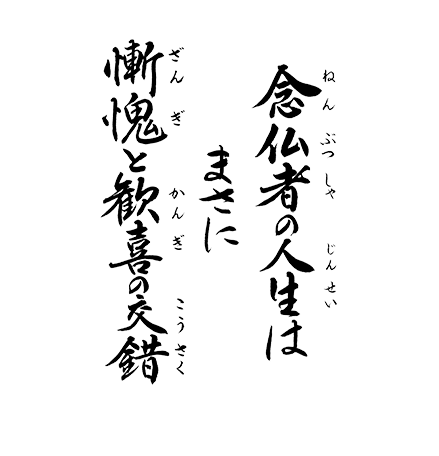 念仏者の人生は
ねんぶつしゃ じんせい
まさに
慚愧と歓喜の交錯
ざんぎ かんぎ こうさく